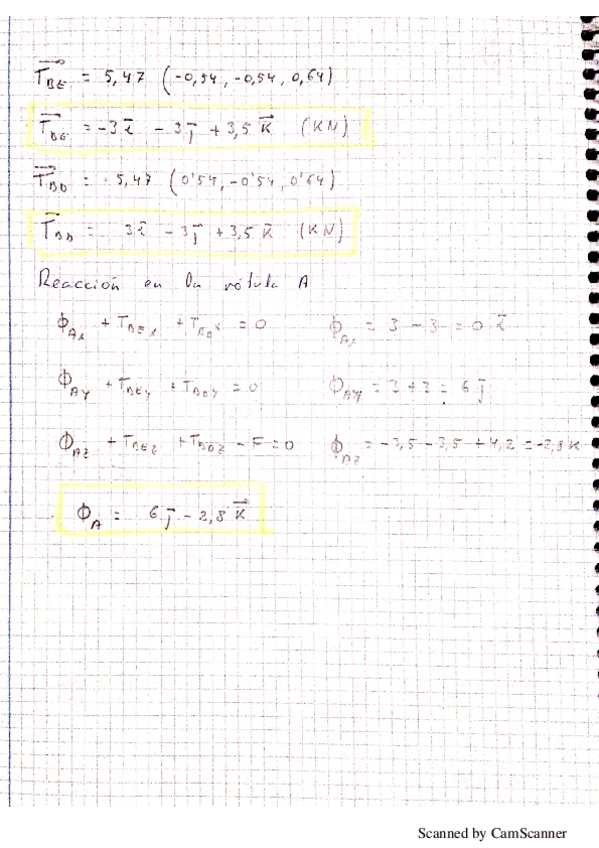 T⃗BE = 5,47 (-0,54, -0,54, 0,64)
T⃗BE = -3i⃗ - 3j⃗ + 3,5k⃗ (KN)
T⃗BD = 5,47 (0'54, -0'54, 0'64)
T⃗BD = 3i⃗ - 3j⃗ + 3,5k⃗ (KN)
Reacción en la rótula A
ϕAx + TBEx + TBDx = 0 ϕAx = 3 - 3 = 0 i⃗
ϕAY + TBEY + TBDY = 0 ϕAY = 3 + 3 = 6 j⃗
ϕAZ + TBEZ + TBDZ - F = 0 ϕAZ = -3,5 - 3,5 + 4,2 = -2,8 K
ϕA = 6j⃗ - 2,8 k⃗
Scanned by CamScanner